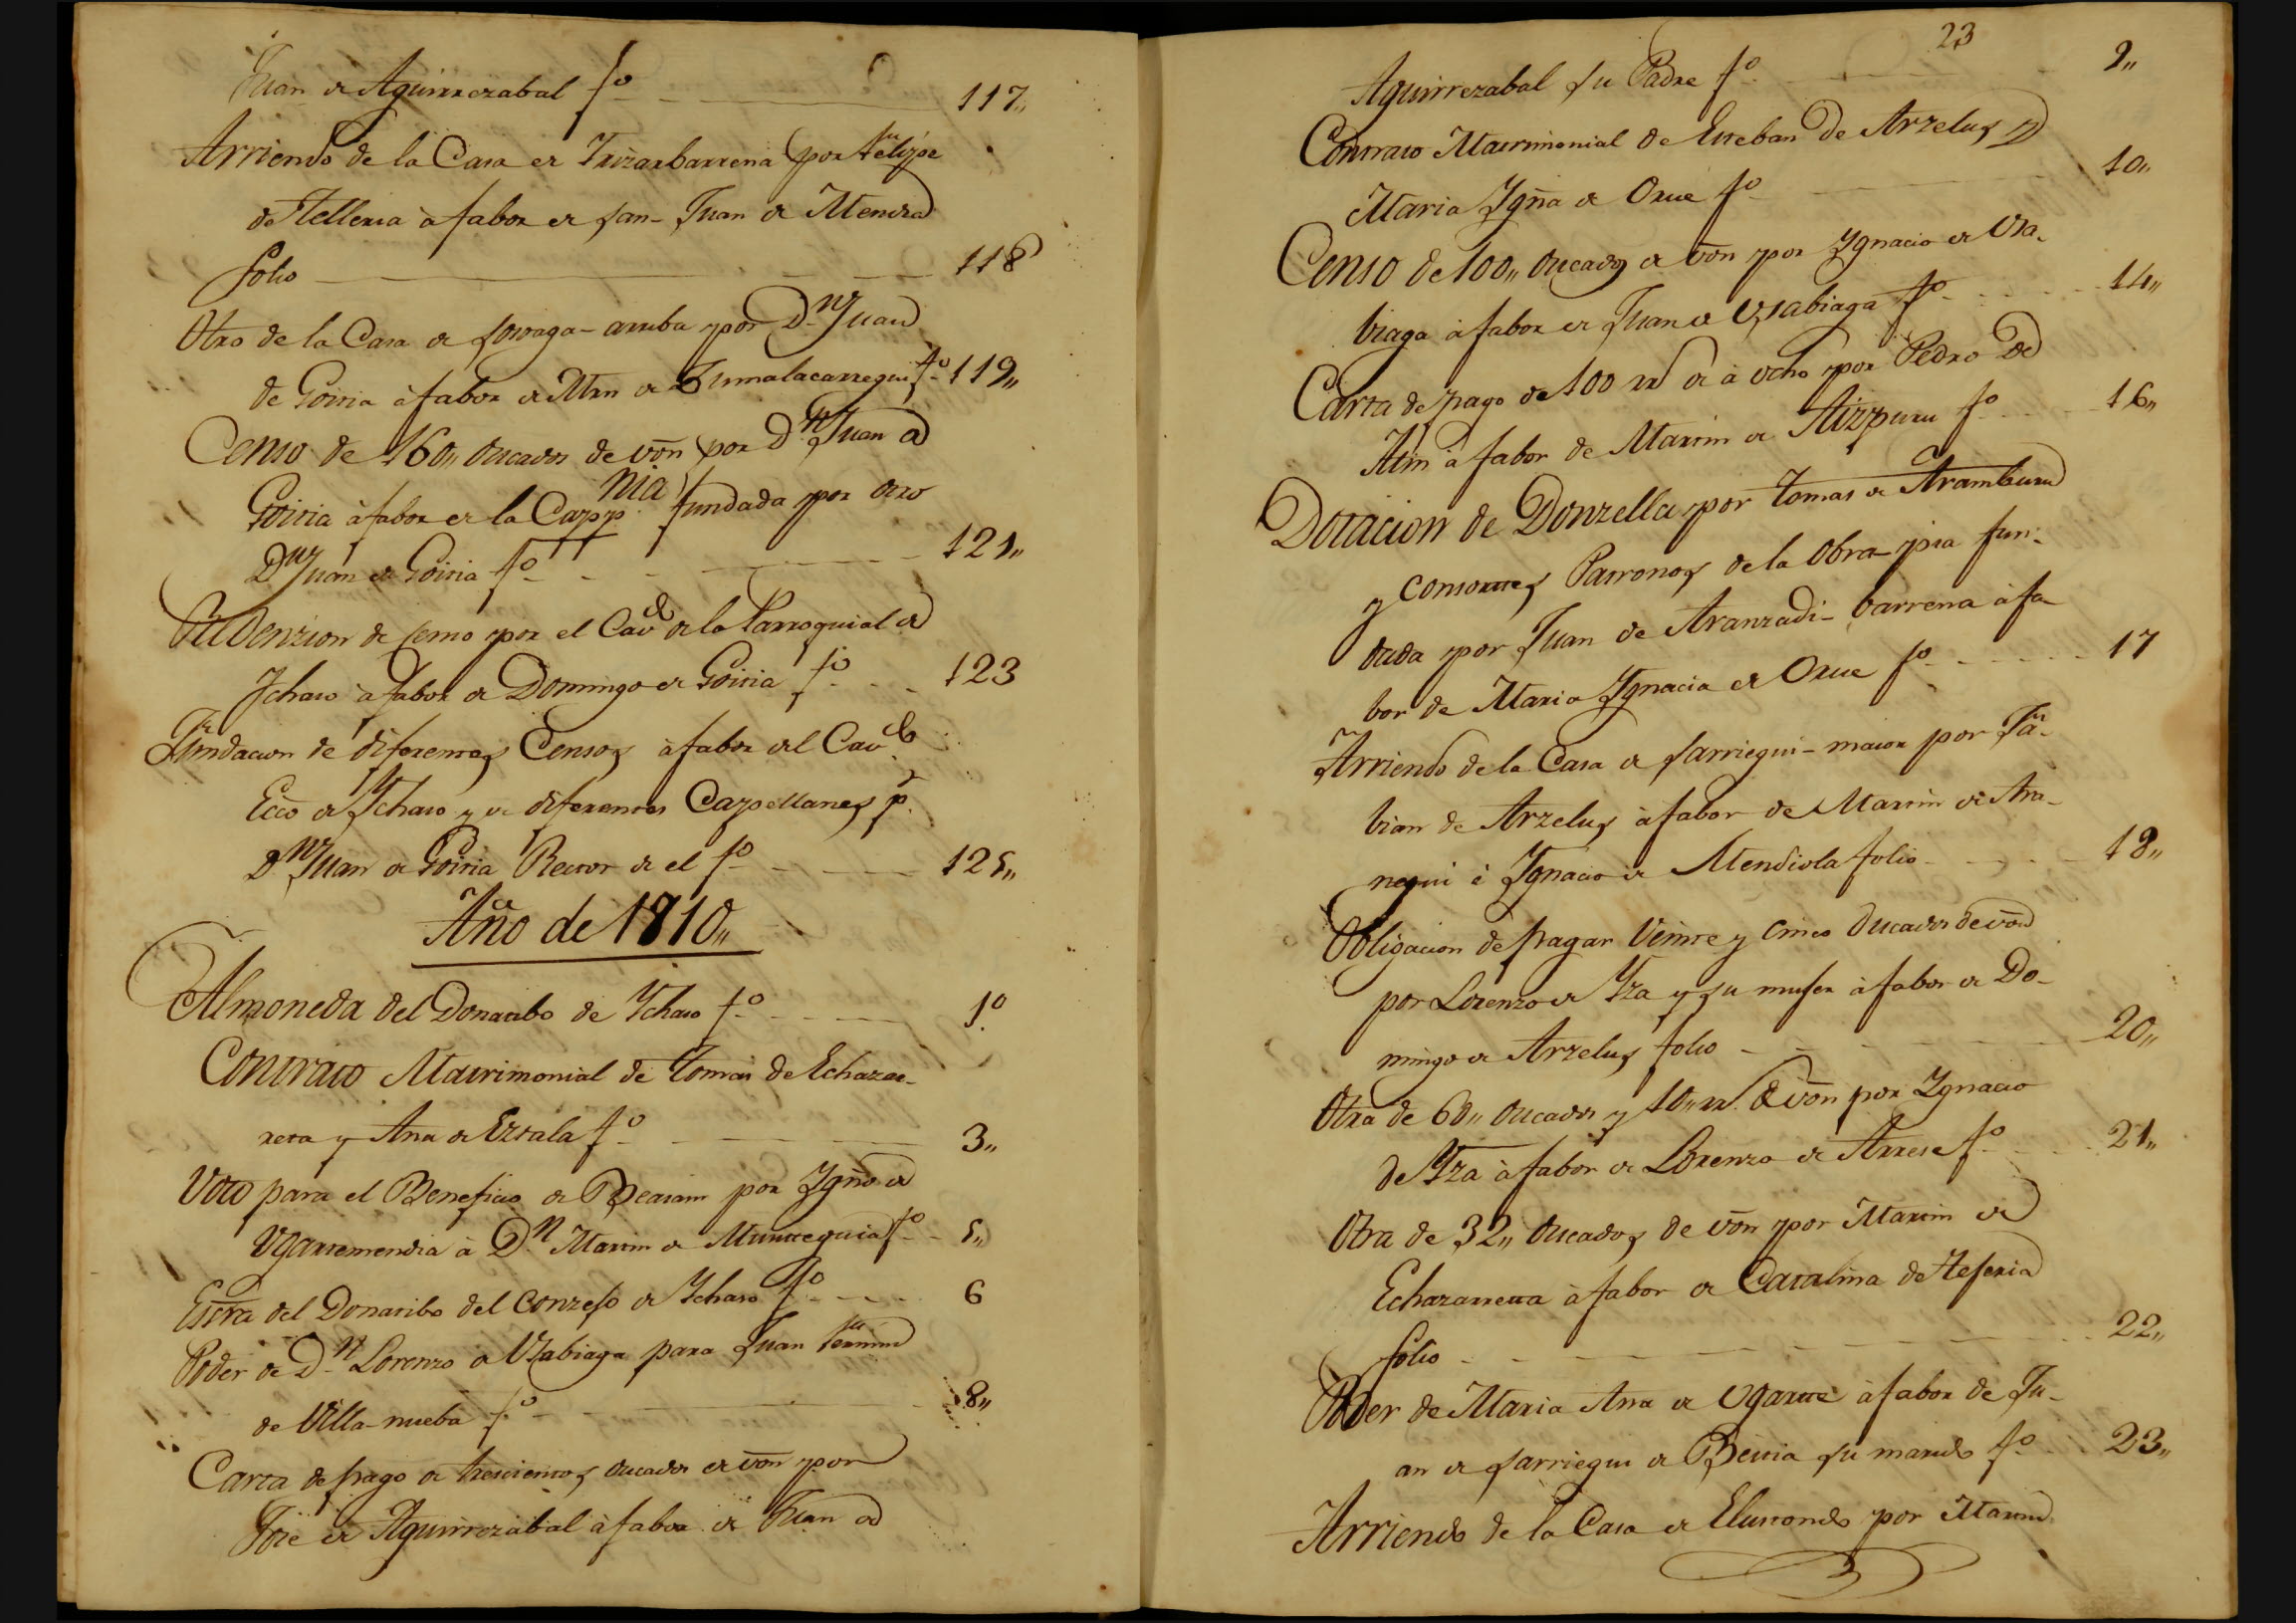 Juan de Aguirrezabal fº 117,,
Arriendo de la Casa de Irizarbarrena por Felipe
de Telleria à fabor de San-Juan de Mendia
folio 118
Otro de la Casa de Soroaga-arriba por Dⁿ Juan
de Goiria à fabor de Mrn de Zumalacarregui fº 119,,
Censo de 160,, ducados de von por Dⁿ Juan de
Goiria à fabor de la Capp.nia fundada por otro
Dⁿ Juan de Goiria fº 121,,
Redenzion de Censo por el Cavdo de la Parroquial de
Ichaso à fabor de Domingo de Goiria fº 123
Fundacion de diferentes Censos à fabor del Cavdo
Ecco de Ychaso y de diferentes Capellanes pr
Dⁿ Juan de Goiria Rector de el fº 125,,
Año de 1810,,
Almoneda del Donatibo de Ychaso fº 1º
Contrato Matrimonial de Tomas de Echazar-
reta y Ana de Ezsala fº 3,,
Voto para el Beneficio de Beasain por Ygño de
Ugarremendia à Dⁿ Martin de Munteguia fº 5,,
Escra del Donatibo del Conzejo de Ychaso fº 6
Poder de Dⁿ Lorenzo de Uzabiaga para Juan Fermin
de Villa-nueba fº 8,,
Carta de pago de trescientos ducados de von por
Jose de Aguirrezabal à fabor de Juan de
23
Aguirrezabal su Padre fº 9,,
Contrato Matrimonial de Esteban de Arzelus y
Maria Ygña de Orue fº 10,,
Censo de 100,, ducados de von por Ygnacio de Usa-
biaga à fabor de Juan de Usabiaga fº 14,,
Carta de pago de 100 rs de à ocho por Pedro de
Atin à fabor de Martin de Aizpuru fº 16,,
Dotacion de Donzella por Tomas de Aramburu
y consortes Patronos de la Obra-pia fun-
dada por Juan de Aranzadi-barrena à fa-
bor de Maria Ygnacia de Orue fº 17
Arriendo de la Casa de Sarriegui-maior por Fa-
bian de Arzelus à fabor de Martin de Ara-
negui è Ygnacio de Mendiola folio 18,,
Obligacion de pagar Veinte y Cinco Ducados de von
por Lorenzo de Yza y su muger à fabor de Do-
mingo de Arzelus folio 20,,
Otra de 60,, ducados y 10,, rs. de von por Ygnacio
de Yza à fabor de Lorenzo de Arrese fº 21,,
Otra de 32,, Ducados de von por Martin de
Echazarreta à fabor de Catalina de Tejeria
folio 22,,
Poder de Maria Ana de Ugarte à fabor de Ju-
an de Sarriegui de Beitia su marido fº 23,,
Arriendo de la Casa de Elustondo por Martin